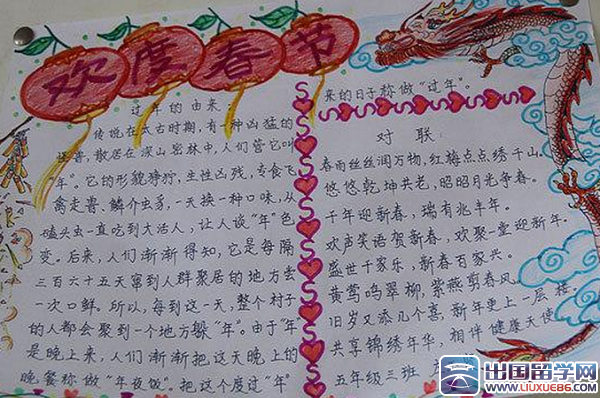 欢度春节
过年的由来:
传说在太古时期,有一种凶猛的
怪兽,散居在深山密林中,人们管它叫
年”。它的形貌狰狞,生性凶残,专食飞
禽走兽、鳞介虫豸,一天换一种口味,从
磕头虫一直吃到大活人,让人谈“年”色
变。后来,人们渐渐得知,它是每隔
三百六十五天窜到人群聚居的地方尝
一次口鲜。所以,每到这一天,整个村子
的人都会聚到一个地方躲“年”。由于“年
是晚上来,人们渐渐把这天晚上的
晚餐称做“年夜饭”。把这个度过“年”
来的日子称做“过年”。
对联:
春雨丝丝润万物,红梅点点绣千山。
悠悠乾坤共老,昭昭日月争春。
千年迎新春,瑞有兆丰年。
欢声笑语贺新春,欢聚一堂迎新年。
盛世千家乐,新春百家兴。
黄莺鸣翠柳,紫燕剪春风。
旧岁又添几个喜,新年更上一层楼
共享锦绣年华,相伴健康天使
五年级三班
出国留学网
WWW.LIUXUE86.COM